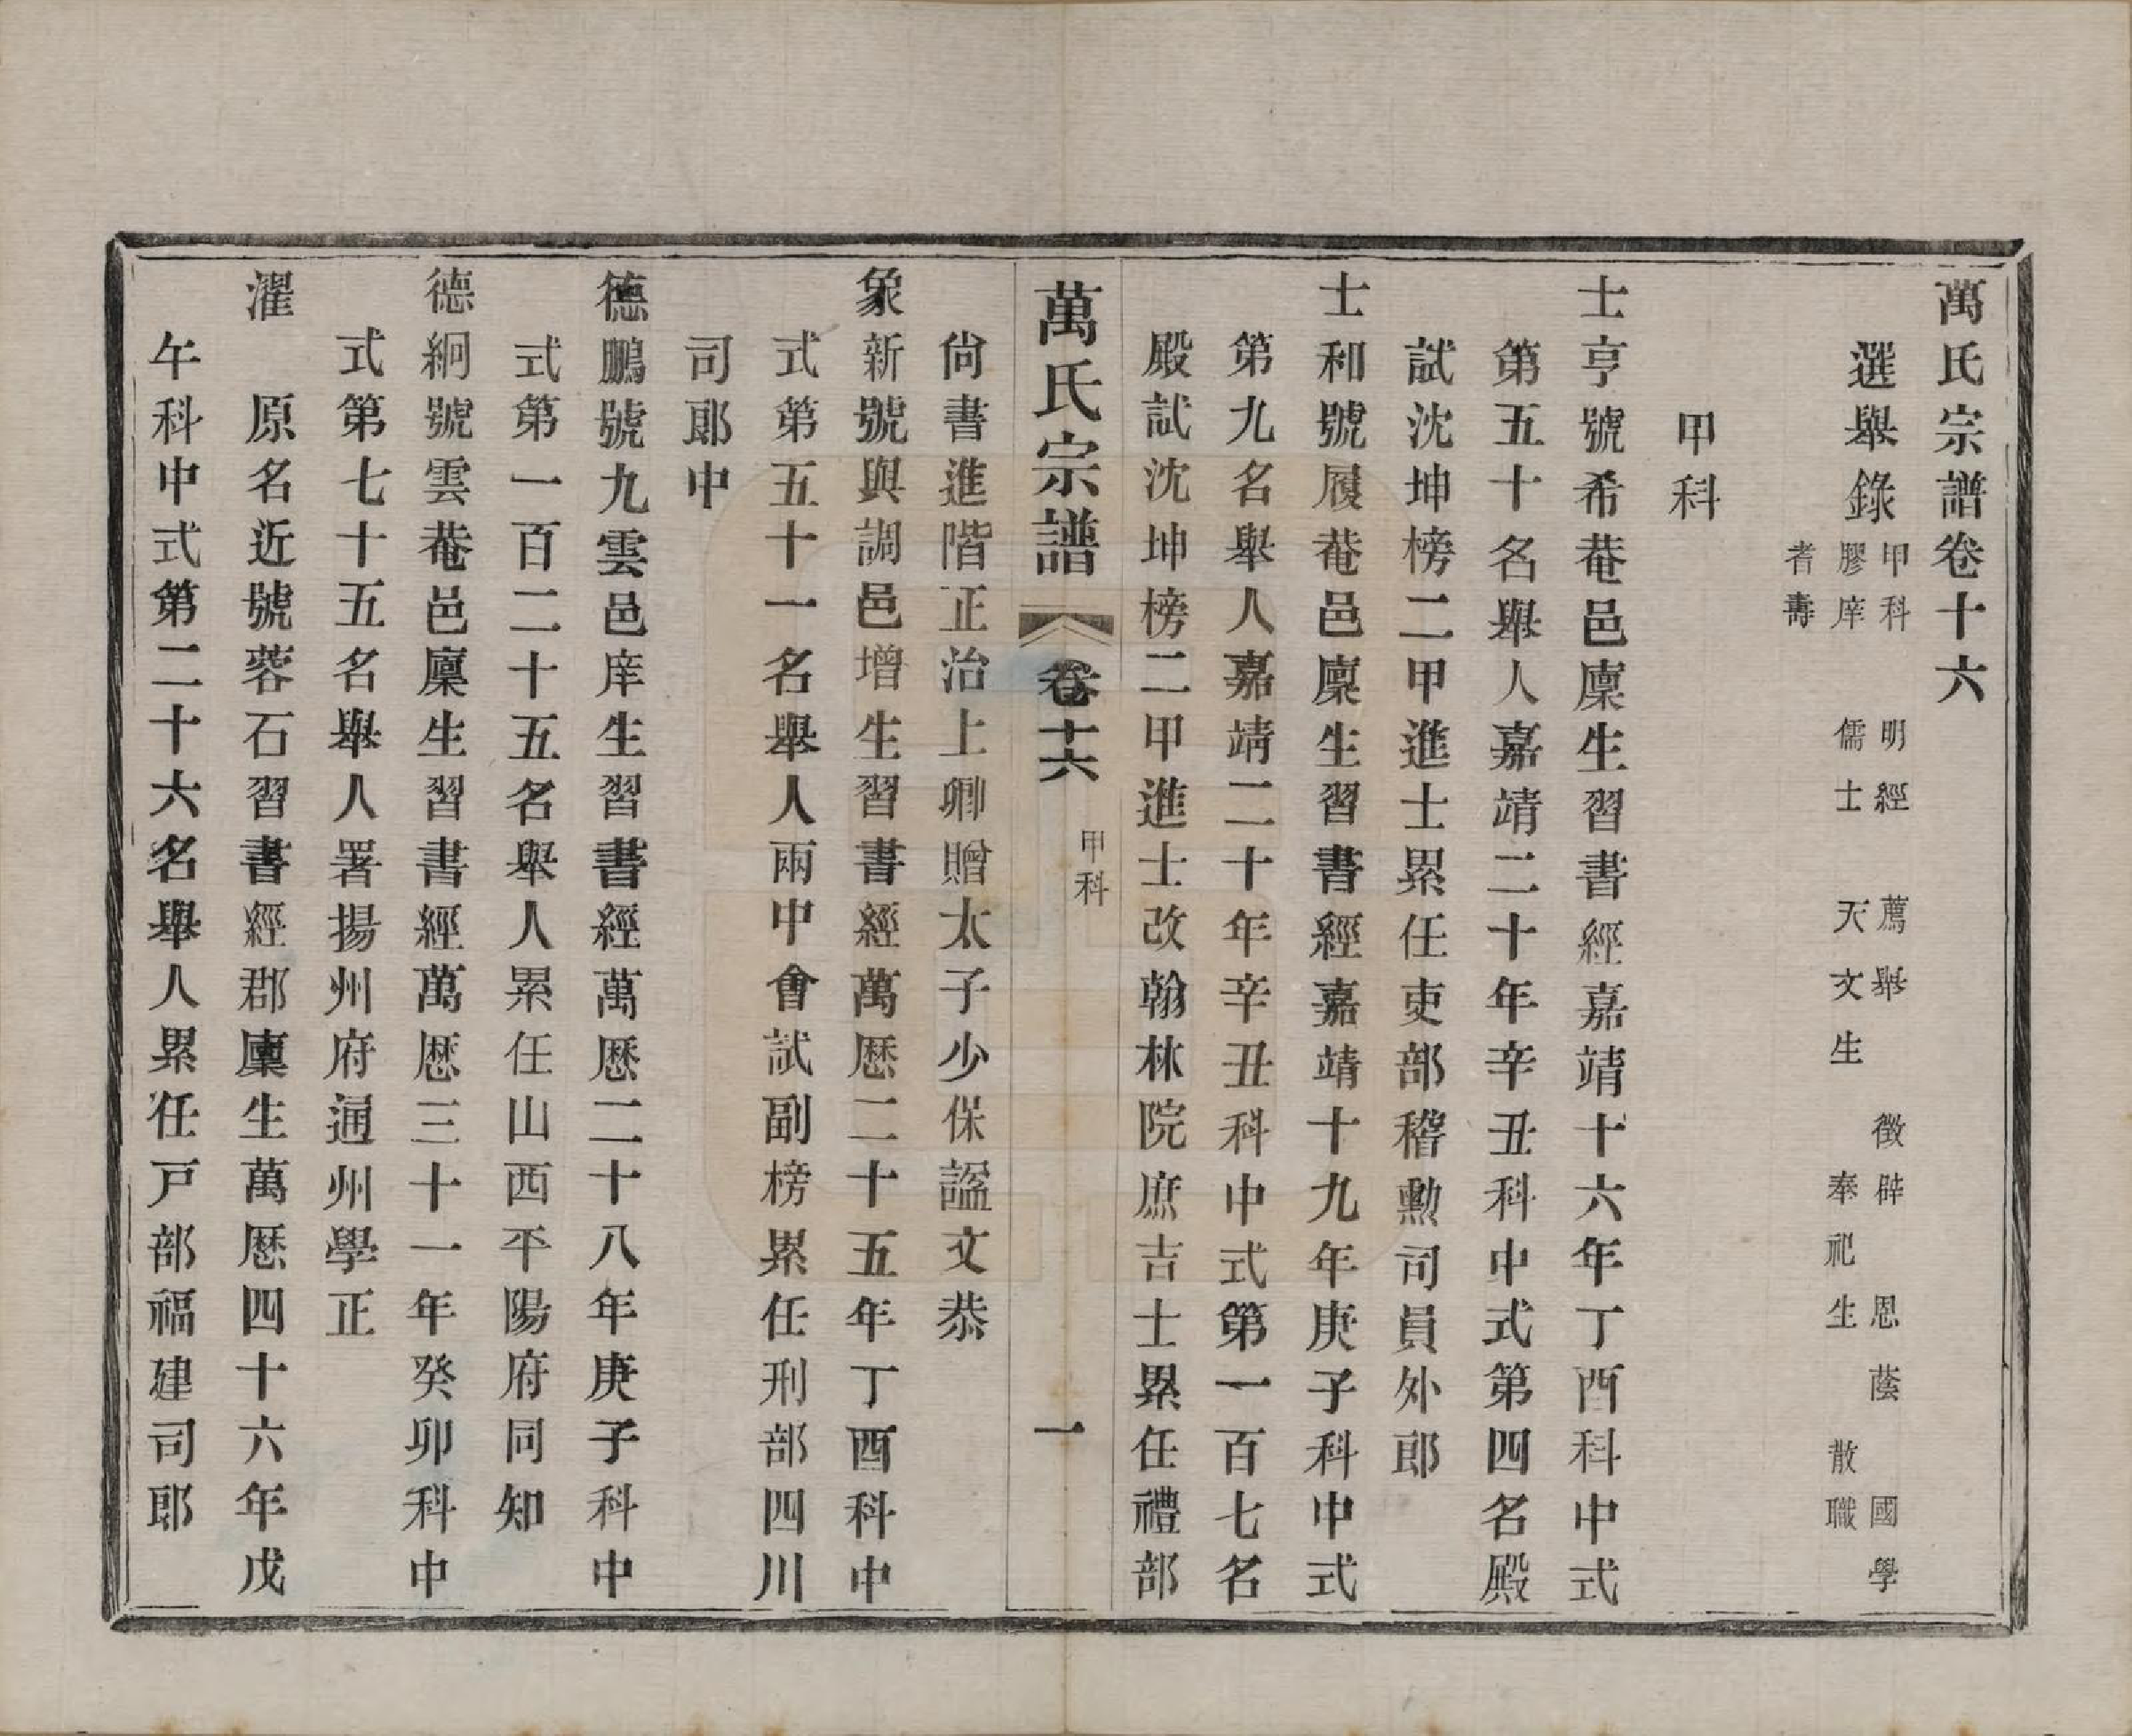 萬氏宗譜卷十六
選舉錄
甲科 明經 薦舉 徵辟 恩蔭 國學
膠庠 儒士 天文生 奉祀生 散職
耆壽
甲科
士亨號希菴邑廩生習書經嘉靖十六年丁酉科中式
第五十名舉人嘉靖二十年辛丑科中式第四名殿
試沈坤榜二甲進士累任吏部稽勳司員外郎
士和號履菴邑廩生習書經嘉靖十九年庚子科中式
第九名舉人嘉靖二十年辛丑科中式第一百七名
殿試沈坤榜二甲進士改翰林院庶吉士累任禮部
萬氏宗譜 卷十六 甲科 一
尙書進階正治上卿贈太子少保謚文恭
象新號與調邑增生習書經萬厯二十五年丁酉科中
式第五十一名舉人兩中會試副榜累任刑部四川
司郎中
德鵬號九雲邑庠生習書經萬厯二十八年庚子科中
式第一百二十五名舉人累任山西平陽府同知
德絅號雲菴邑廩生習書經萬厯三十一年癸卯科中
式第七十五名舉人署揚州府通州學正
濯 原名近號蓉石習書經郡廩生萬厯四十六年戊
午科中式第二十六名舉人累任戸部福建司郎